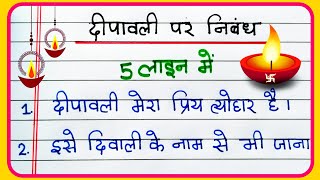 दीपावली पर निबंध
5 लाइन में
1. दीपावली मेरा प्रिय त्योहार है।
2. इसे दिवाली के नाम से भी जाना